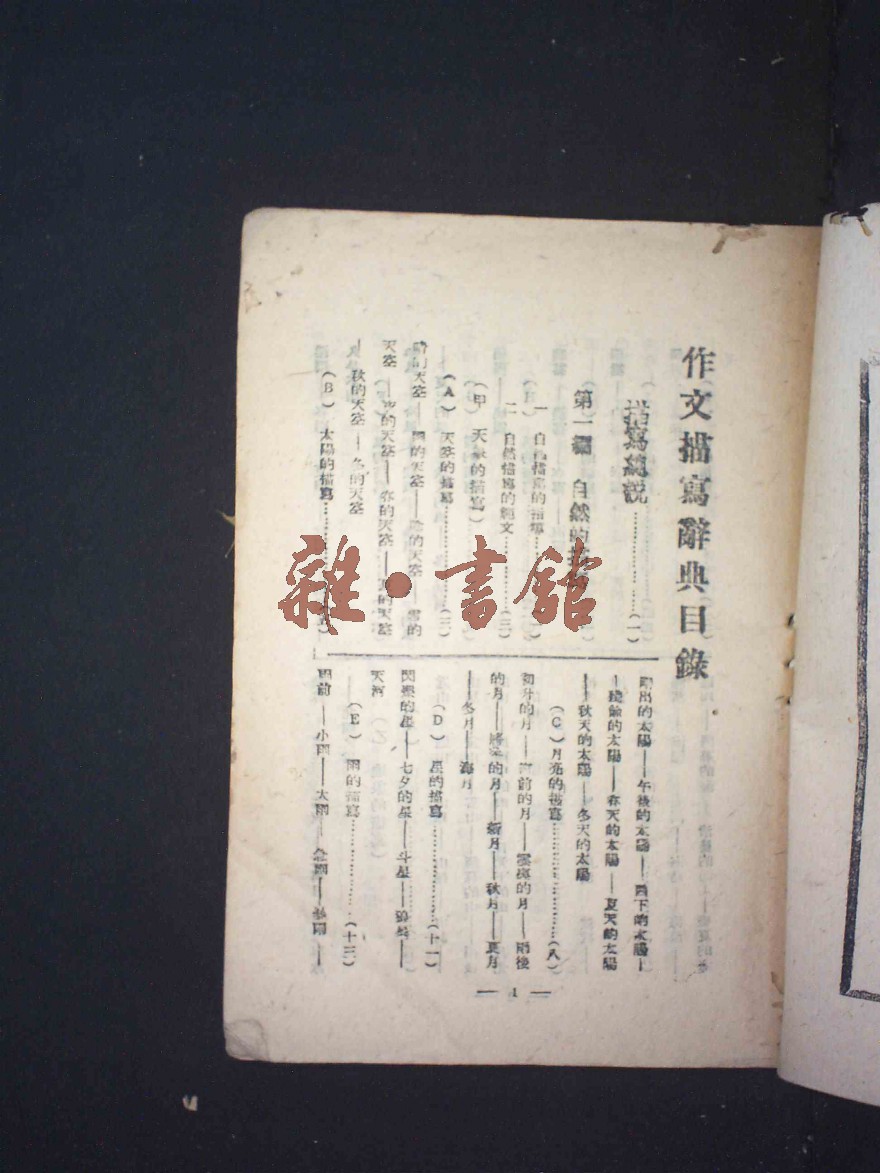 作文描寫辭典目錄
描寫總説……………(一)
第一編 自然的
一 自然描寫的
二 自然描寫的範文…………(三)
(甲)天象的描寫
(A)天空的描寫…………(三)
的天空——的天空——的天空——雪的
天空——的天空——春的天空——的天空
——秋的天空——冬的天空
(B)太陽的描寫
出的太陽——午後的太陽——西下的太陽——
的太陽——春天的太陽——夏天的太陽
——秋天的太陽——冬天的太陽
(C)月亮的描寫…………(八)
初升的月——前的月——的月——雨後
的月——的月——新月——秋月——夏月
——冬月——海月
(D)星的描寫…………(十一)
閃爍的星——七夕的星——斗星——
天河
(E)雨的描寫…………(十三)
雨前——小雨——大雨——雨——雨——
— 1 —
雜·書館